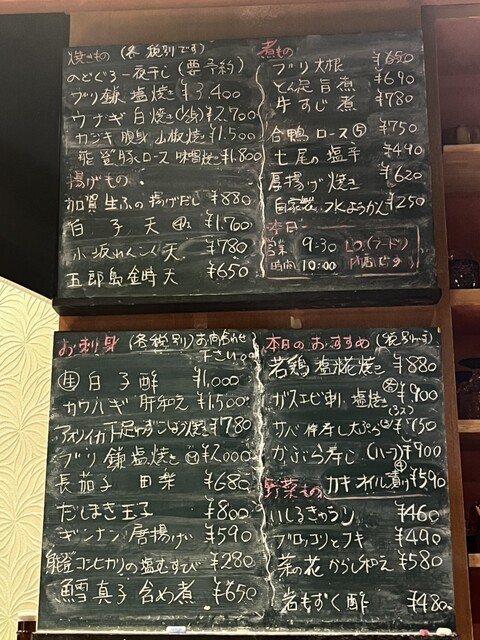 焼きもの (各税別です)
のどぐろ一夜干し (要予約)
ブリ鎌塩焼き ¥3,400
ウナギ白焼き ¥2,700
カジキ腹身山椒焼き ¥1,500
能登豚ロース味噌焼き ¥1,800
揚げもの
加賀生ふの揚げだし ¥880
白子天 ¥1,700
小坂れんこん天 ¥780
五郎島金時天 ¥650
煮もの
ブリ大根 ¥650
とん足旨煮 ¥690
牛すじ煮 ¥780
合鴨ロース⑤ ¥750
七尾の塩辛 ¥490
唐揚げ焼き ¥620
自家製 水ようかん ¥250
本日
営業 9:30 L.O.(フード)
時間 10:00
お刺身 (各税別) お問合わせ
下さい。
㊗白子酢 ¥1,000
カワハギ肝和え ¥1,500
アオリイカ下足ゆずこしょう焼き ¥780
ブリ鎌塩焼き ¥2,000
長茄子 田楽 ¥680
だしまき玉子 ¥800
ギンナン唐揚げ ¥590
能登コシヒカリの塩むすび ¥280
鱈真子含め煮 ¥650
本日のおすすめ (税別です)
若鶏塩焼き ¥880
ガスエビ 塩焼き ¥900
サバ 天ぷら ¥750
かぶら寿し (ハーフ) ¥900
カキオイル漬け ¥590
野菜もの
いしるきゅうり ¥460
ブロッコリとフキ ¥490
菜の花からし和え ¥580
岩もずく酢 ¥480